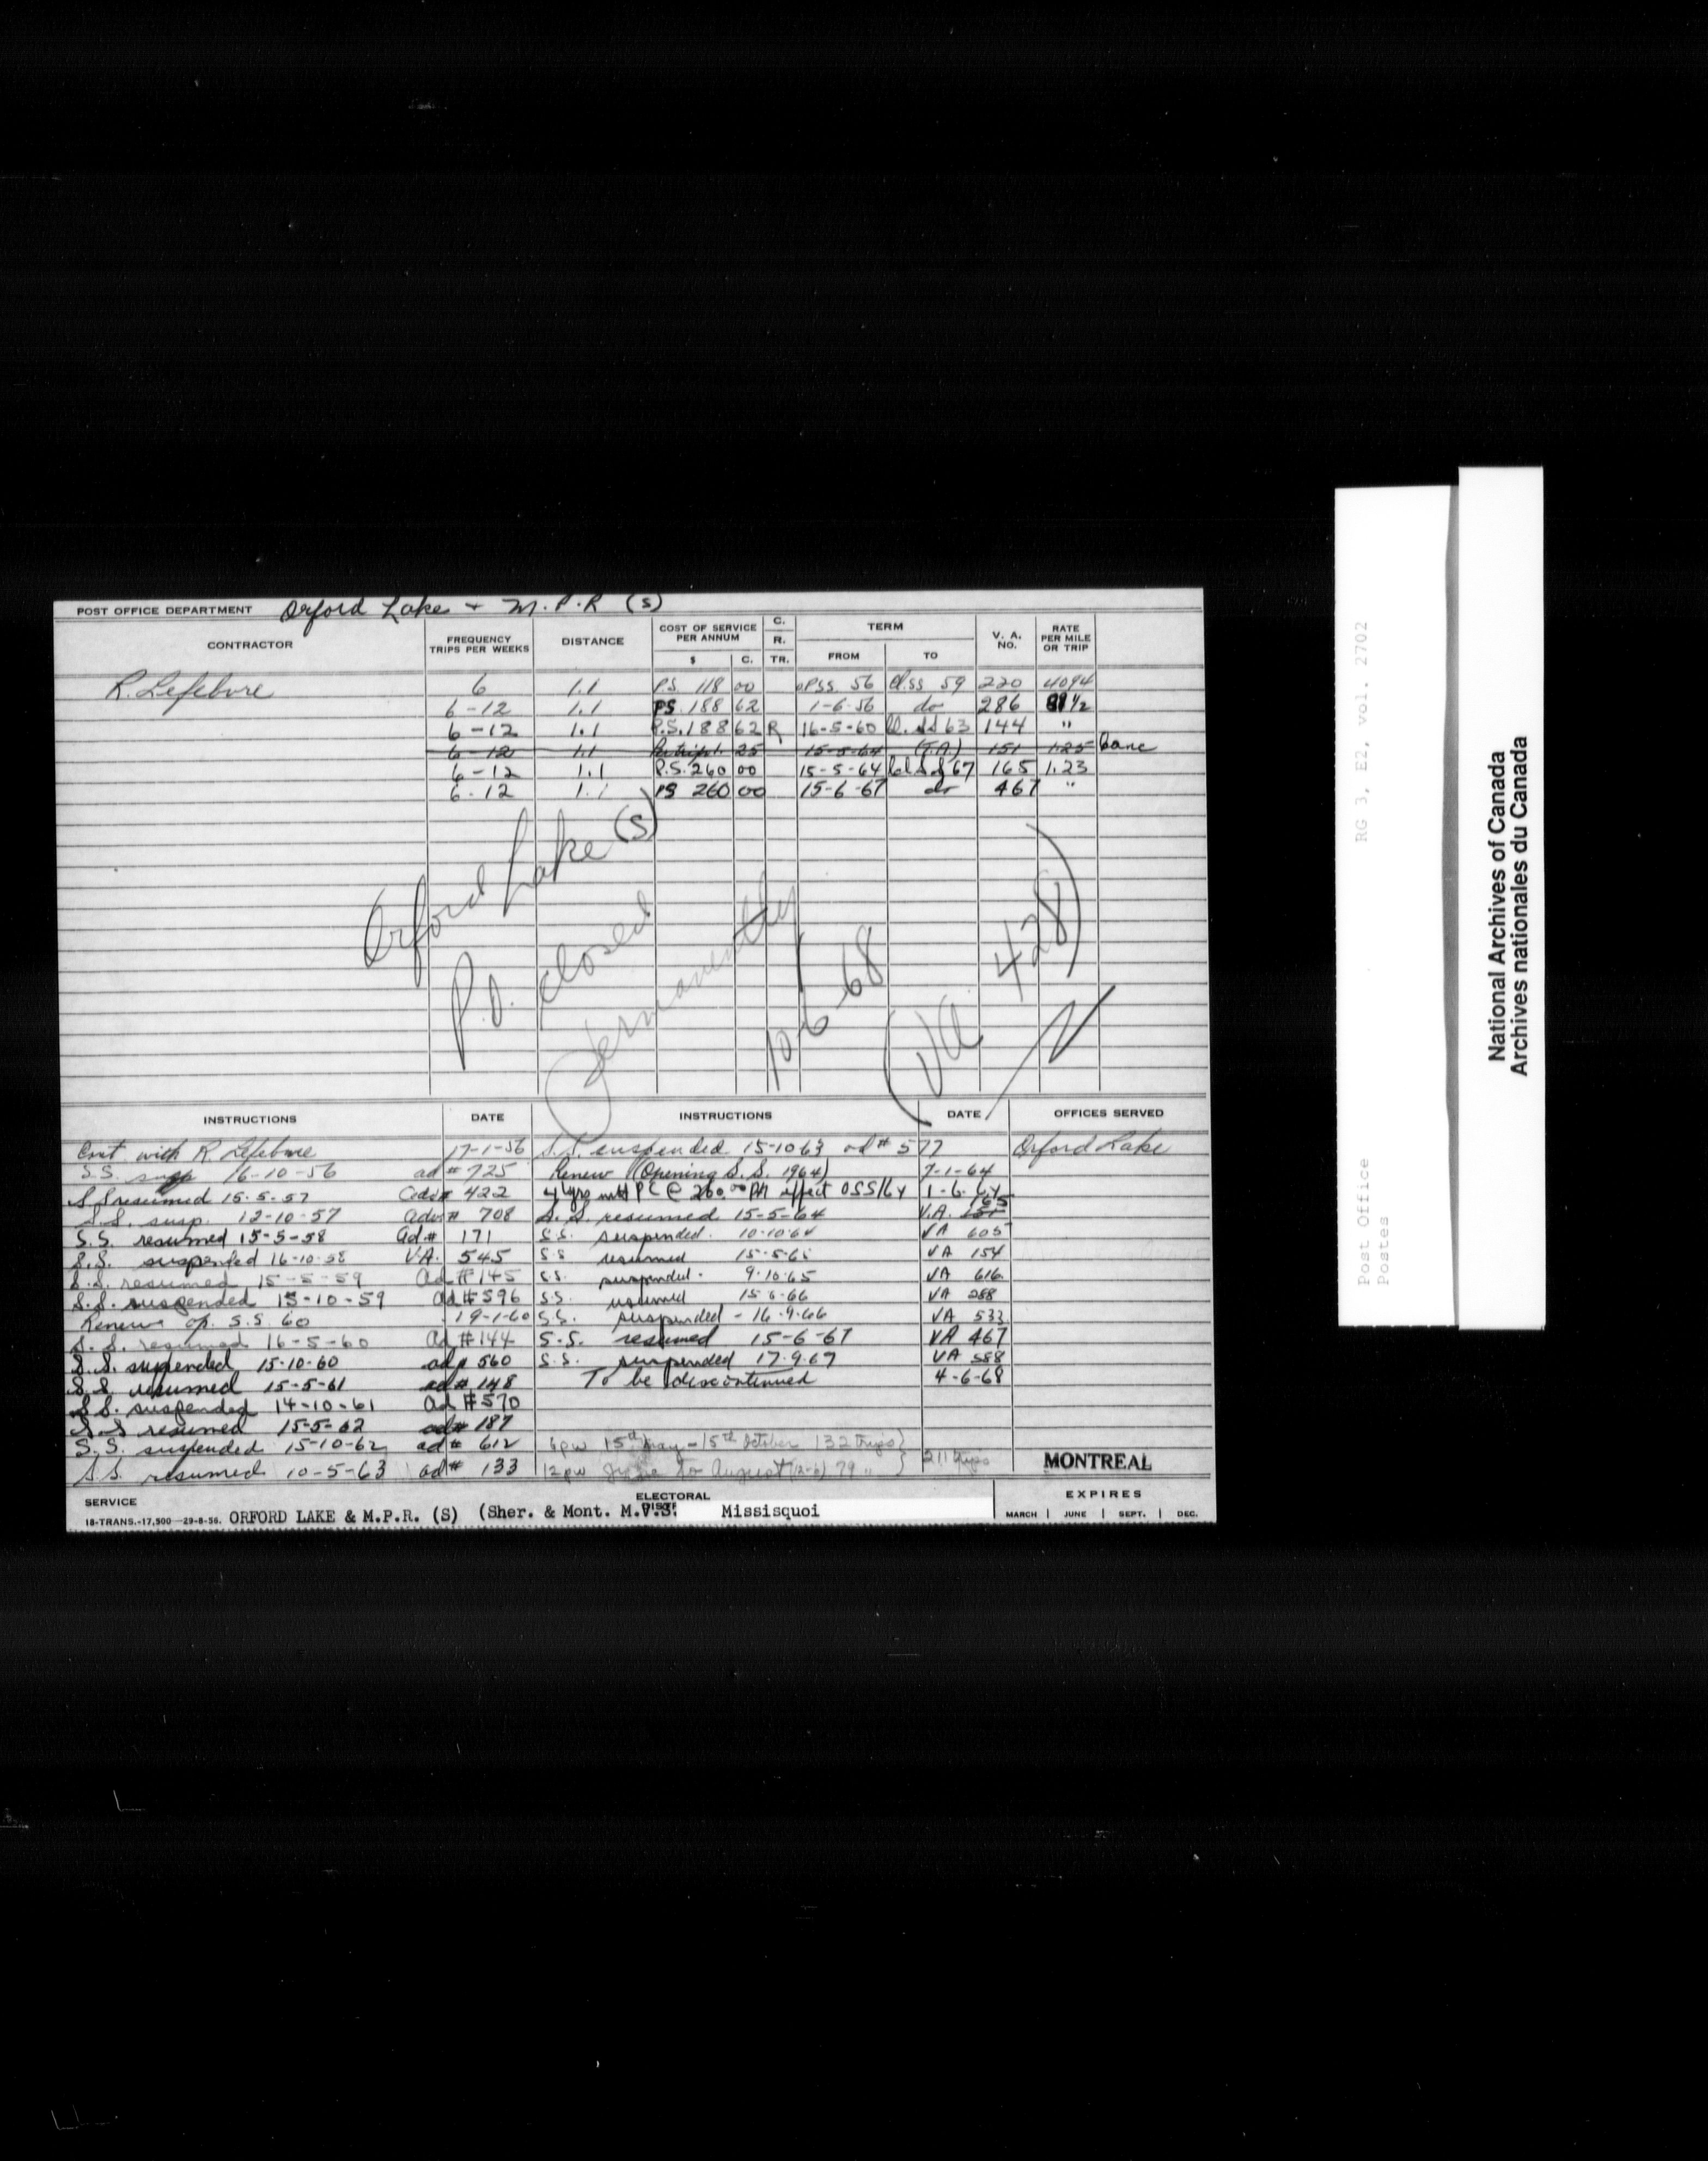 POST OFFICE DEPARTMENT Orford Lake + M.P.R (S)
CONTRACTOR FREQUENCY TRIPS PER WEEKS DISTANCE COST OF SERVICE PER ANNUM $ C. C. R. TR. TERM FROM TO V. A. NO. RATE PER MILE OR TRIP
R. Lefebvre 6 1.1 P.S. 118 00 opss 56 cl.ss 59 220 4094
6-12 1.1 PS 188 62 1-6-56 do 286 81 1/2
6-12 1.1 P.S. 188 62 R 16-5-60 cl. ss 63 144 "
6-12 1.1 25 15-5-64 (T.A.) 151 1.25 Canc
6-12 1.1 P.S. 260 00 15-5-64 cl s s 67 165 1.23
6-12 1.1 PS 260 00 15-6-67 do 467 "
Orford Lake (S)
P.O. closed
Permanently
10-6-68
(VA 428)
INSTRUCTIONS DATE INSTRUCTIONS DATE OFFICES SERVED
Cont with R. Lefebvre 17-1-56 S.S. suspended 15-10 63 ad # 577 Orford Lake
S.S. susp 16-10-56 ad # 725 Renew (Opening S.S. 1964) 7-1-64
S.S resumed 15-5-57 Adv# 422 4 yrs with PC @ 260.00 PA effect OSS/64 1-6-64
S.S. susp. 12-10-57 adv# 708 S.S. resumed 15-5-64 V.A. 151 165
S.S. resumed 15-5-58 ad.# 171 S.S. suspended. 10-10-64 VA 605
S.S. suspended 16-10-58 V.A. 545 S.S resumed 15-5-65 VA 154
S.S. resumed 15-5-59 Ad #145 S.S. suspended. 9-10-65 VA 616
S.S. suspended 15-10-59 Ad #596 S.S. resumed 15-6-66 VA 288
Renew op. S.S. 60 19-1-60 S.S. suspended - 16-9-66 VA 533
S.S. resumed 16-5-60 Ad #144 S.S. resumed 15-6-67 VA 467
S.S. suspended 15-10-60 ad# 560 S.S. suspended 17-9-67 VA 588
S.S. resumed 15-5-61 ad # 148 To be discontinued 4-6-68
S.S. suspended 14-10-61 Ad #570
S.S resumed 15-5-62 ad# 187
S.S. suspended 15-10-62 ad # 612 6pw 15th May - 15th October 132 trips }
S.S. resumed 10-5-63 ad # 133 12pw June to August (12-6) 79 " } 211 trips MONTREAL
SERVICE ELECTORAL DIST. EXPIRES
18-TRANS.-17,500-29-8-56. ORFORD LAKE & M.P.R. (S) (Sher. & Mont. M.V.S. Missisquoi MARCH | JUNE | SEPT. | DEC.
RG 3, E2, vol. 2702
Post Office
Postes
National Archives of Canada
Archives nationales du Canada